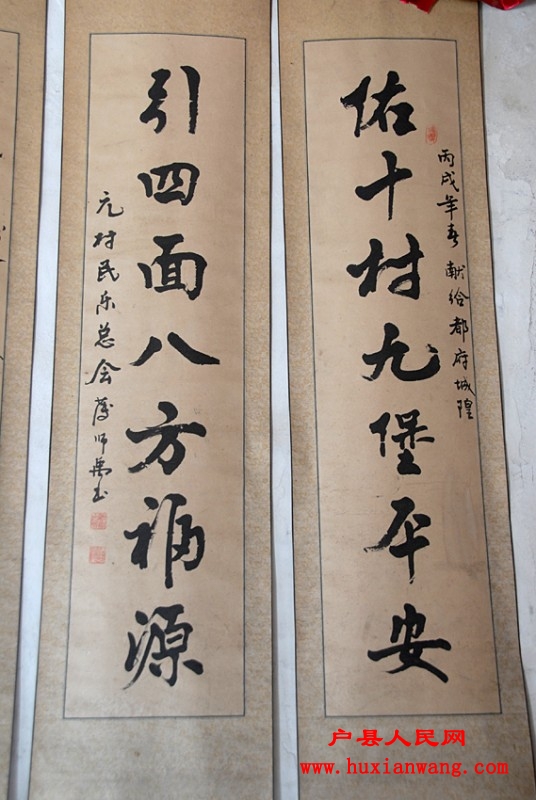 佑十村九堡平安
丙戌年春 献给都府城隍
引四面八方福源
元村民乐总会 师
户县人民网
www.huxianwang.com